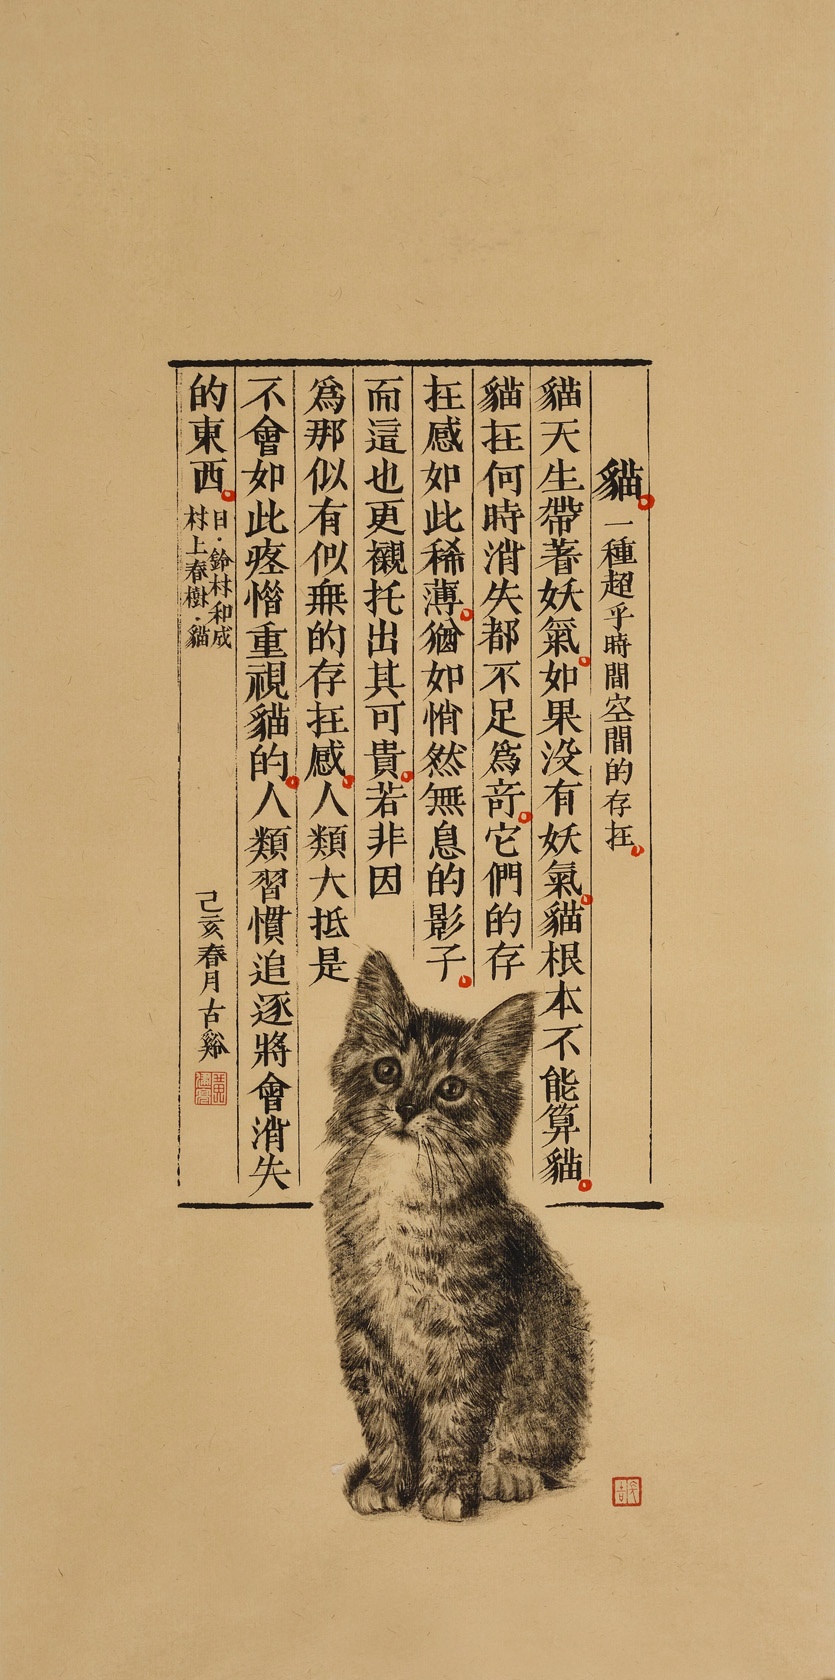 貓。一種超乎時間空間的存在。
貓天生帶著妖氣。如果没有妖氣。貓根本不能算貓。
貓在何時消失都不足爲奇。它們的存
在感如此稀薄。猶如悄然無息的影子。
而這也更襯托出其可貴。若非因
爲那似有似無的存在感。人類大抵是
不會如此疼惜重視貓的。人類習慣追逐將會消失
的東西。
日·鈴村和成
村上春樹·貓
己亥春月古谿